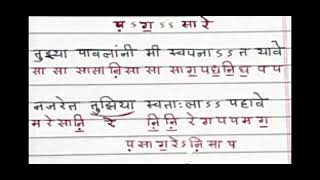 प़ ऽ ग॒ ऽ ऽ सा रे
तुझ्या पावलांनी मी स्वपनाऽऽ त यावे
सा सा सासानि॒सा सा सा ग॒ पध॒नि॒ध॒ प प
नजरेत तुझिया स्वताःलाऽऽ पहावे
म रे सानि॒ रे नि॒ नि॒ रे ग प प म ग॒
प़ सा ग॒ रे ऽ नि॒ सा प